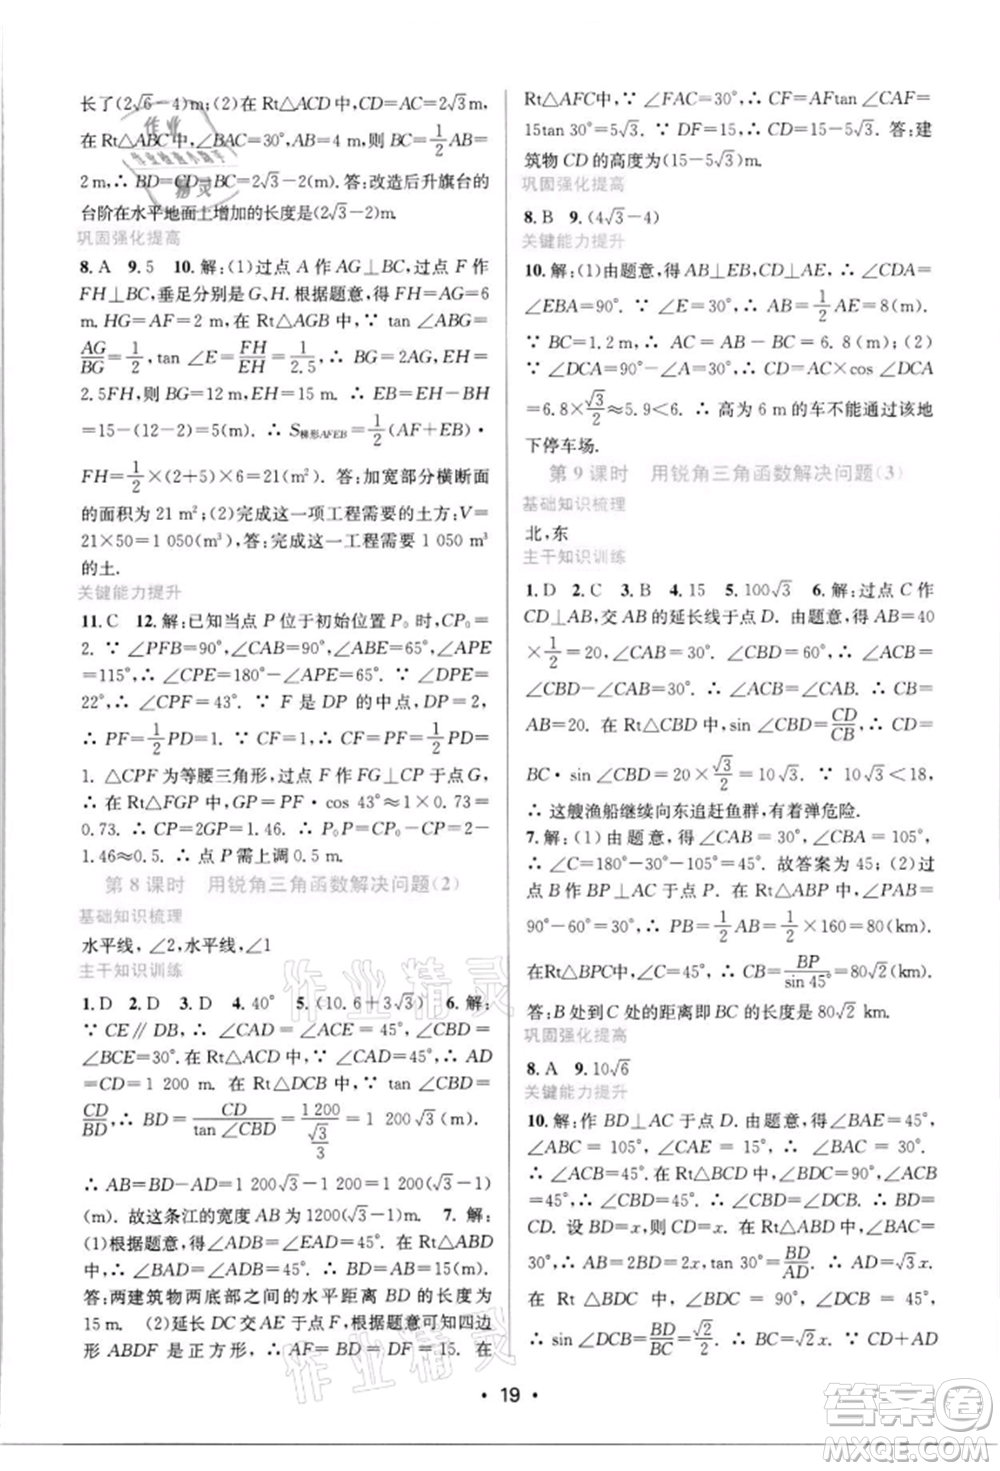 长了(2√6-4)m;(2)在 Rt△ACD 中,CD=AC=2√3 m,
在 Rt△ABC 中,∠BAC=30°,AC=2√3 m,则 BC=1/2
2 m,∴ BD=CD-BC=2√3-2(m).答:改造后升旗台的
台阶在水平地面上增加的长度是(2√3-2)m.
巩固强化提高
8. A 9. 5 10. 解:(1)过点 A 作 AG⊥BC,过点 F 作
FH⊥BC,垂足分别是 G、H. 根据题意,得 FH=AG=6
m. HG=AF=2 m,在 Rt△AGB 中,∵ tan ∠ABG=
AG/BG=1/2,tan ∠E=FH/EH=1/2.5,∴ BG=2AG,EH=
2.5FH,∴ BG=12 m,EH=15 m. ∴ EB=EH-BH
=15-(12-2)=5(m). ∴ S梯形AFEB=1/2(AF+EB)·
FH=1/2×(2+5)×6=21(m²). 答:加宽部分横断面
的面积为 21 m²;(2)完成这一项工程需要的土方:V=
21×50=1 050(m³),答:完成这一工程需要 1 050 m³
的土.
关键能力提升
11. C 12. 解:已知当点 P 位于初始位置 P₀ 时,CP₀=
2. ∵ ∠PFB=90°,∠CAB=90°,∠ABE=65°,∠APE
=115°,∴ ∠CPE=180°-∠APE=65°. ∵ ∠DPE=
22°,∴ ∠CPF=43°. ∵ F 是 DP 的中点,
∴ PF=1/2PD=1.
1. △CPF 为等腰三角形,过点 F 作 FG⊥CP 于点 G,
在 Rt△FGP 中,GP=PF·cos 43°≈1×0.73=
0.73. ∴ CP=2GP=1.46. ∴ P₀P=CP₀-CP=2-
1.46≈0.5. ∴ 点 P 需上调 0.5 m.
第 8 课时 用锐角三角函数解决问题(2)
基础知识梳理
水平线,∠2,水平线,∠1
主干知识训练
1. D 2. D 3. D 4. 40° 5. (10.6+3√3) 6. 解:
∵ CE∥DB,∴ ∠CAD=∠ACE=45°,∠CBD=
∠BCE=30°. 在 Rt△ACD 中,∵ ∠CAD=45°,∴ AD
=CD=1 200 m. 在 Rt△DCB 中,∵ tan ∠CBD=
CD/BD,∴ BD=CD/tan ∠CBD=1 200/(√3/3)=1 200√3(m).
∴ AB=BD-AD=1 200√3-1 200=1 200(√3-1)
(m). 故这条江的宽度 AB 为 1200(√3-1)m. 7. 解:
(1)根据题意,得∠ADB=∠EAD=45°. 在 Rt△ABD
中,∵ ∠ADB=45°,∴ BD=AB=15(m).
答:两建筑物两底部之间的水平距离 BD 的长度为
15 m. (2)延长 DC 交 AE 于点 F,根据题意可知四边
形 ABDF 是正方形,∴ AF=BD=DF=15. 在
Rt△AFC中,∵ ∠FAC=30°,∴ CF=AFtan ∠CAF=
15tan 30°=5√3. ∵ DF=15,∴ CD=15-5√3. 答:建
筑物 CD 的高度为(15-5√3)m.
巩固强化提高
8. B 9. (4√3-4)
关键能力提升
10. 解:(1)由题意,得 AB⊥EB,CD⊥AE,∴ ∠CDA=
∠EBA=90°. ∵ ∠E=30°,∴ AB=1/2AE=8(m).
∵ BC=1.2 m,∴ AC=AB-BC=6.8(m);(2)
∵ ∠DCA=90°-∠A=30°,∴ CD=AC×cos ∠DCA
=6.8×√3/2≈5.9<6. ∴ 高为 6 m 的车不能通过该地
下停车场.
第 9 课时 用锐角三角函数解决问题(3)
基础知识梳理
北,东
主干知识训练
1. D 2. C 3. B 4. 15 5. 100√3 6. 解:过点 C 作
CD⊥AB,交 AB 的延长线于点 D. 由题意,得 AB=40
×1/2=20,∠CAB=30°,∠CBD=60°. ∴ ∠ACB=
∠CBD-∠CAB=30°. ∴ ∠CAB=∠ACB. ∴ CB=
AB=20. 在 Rt△CBD 中,sin ∠CBD=CD/CB,∴ CD=
BC·sin ∠CBD=20×√3/2=10√3. ∵ 10√3>10,
∴ 这艘渔船继续向东追赶鱼群,有着弹危险.
7. 解:(1)由题意,得∠CAB=30°,∠CBA=105°,
∴ ∠C=180°-30°-105°=45°. 故答案为 45;(2)过点
B 作 BP⊥AC 于点 P,∴ ∠BPA=90°,∠ABP=
90°-60°=30°. ∴ PB=1/2AB=1/2×160=80(km).
在Rt△BPC中,∠C=45°,∴ BC=BP/sin 45°=80√2(km).
答:B 处到 C 处的距离即 BC 的长度是 80√2 km.
巩固强化提高
8. A 9. 10√6
关键能力提升
10. 解:作 BD⊥AC 于点 D. 由题意,得∠BAE=45°,
∠ABC=105°,∠CAE=15°,∴ ∠BAC=30°.
∴ ∠ACB=45°. 在 Rt△BCD 中,∠BDC=90°,∠ACB
=45°,∴ ∠CBD=45°. ∴ ∠CBD=∠DCB. ∴ BD=
CD. 设 BD=x,则CD=x,在 Rt△ABD 中,∠BAC
=30°,∴ AB=2BD=2x,tan 30°=BD/AD. ∴ AD=√3x.
在 Rt △BDC 中,∵ ∠BDC=90°,∠DCB=45°,
∴ sin ∠DCB=BD/BC=√2/2. ∴ BC=√2x,∵ CA+CD
· 19 ·
作业精灵
作业精灵
答案圈
MXQE.COM